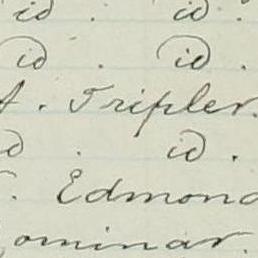 id . id .
id . id .
A. Tripler.
id . id .
. Edmond
ominar.